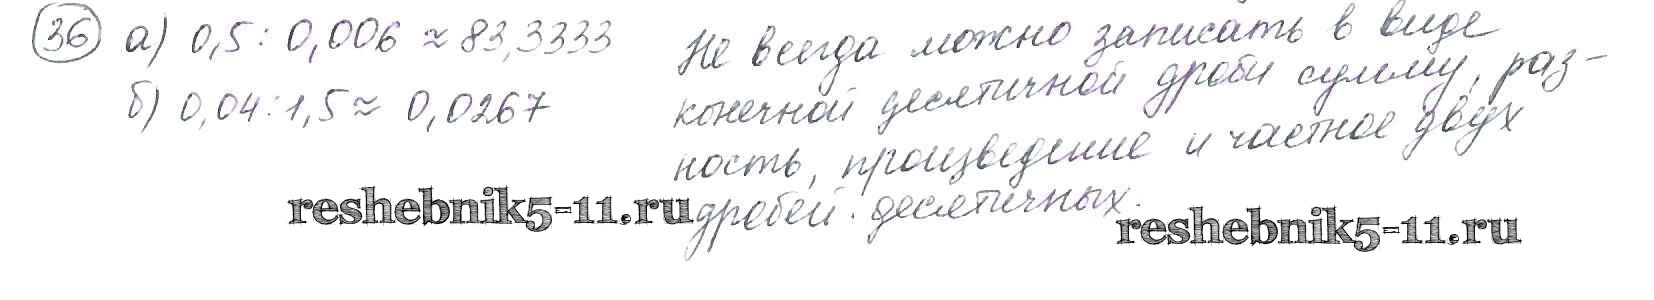 36 а) 0,5 : 0,006 ≈ 83,3333
б) 0,04 : 1,5 ≈ 0,0267
Не всегда можно записать в виде
конечной десятичной дроби сумму, раз-
ность, произведение и частное двух
дробей десятичных.
reshebnik5-11.ru
reshebnik5-11.ru